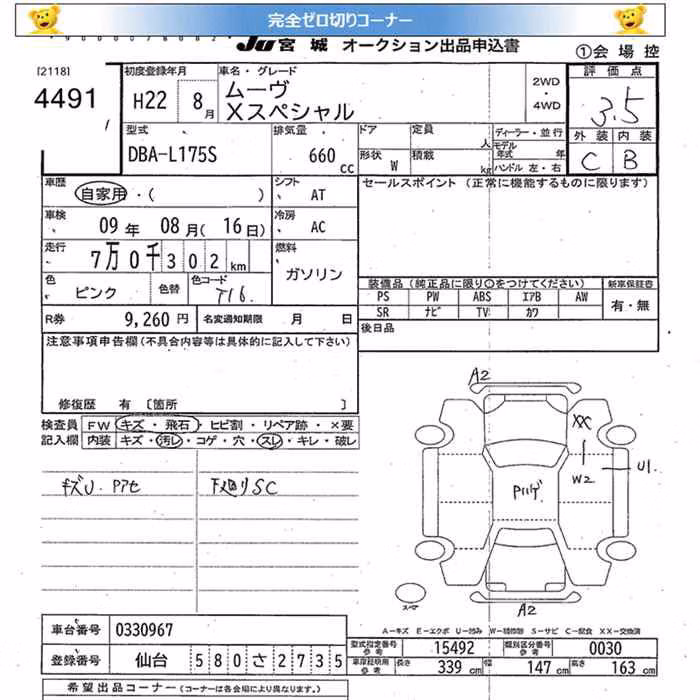 完全ゼロ切りコーナー
JU 宮城 オークション出品申込書
①会場控
[2118]
4491
初度登録年月
H22 8月
車名・グレード
ムーヴ
Xスペシャル
2WD
・
4WD
評価点
3.5
外装 内装
C B
型式
DBA-L175S
排気量
660 cc
ドア 定員 人
形状 W 積載 kg
ディーラー・並行
モデル年式 年
ハンドル 左・右
車歴
自家用・( )
シフト AT
セールスポイント (正常に機能するものに限ります)
車検 09年 08月(16日)
冷房 AC
走行 7万0千302km
燃料
ガソリン
色 ピンク 色替 色コード T16.
装備品 (純正品に限り○をつけてください)
新車保証書
PS PW ABS エアB AW
有・無
SR ナビ TV カワ
R券 9,260円 名変通知期限 月 日
後日品
注意事項申告欄(不具合内容等は具体的に記入して下さい)
修復歴 有 〔箇所 〕
検査員 FW キズ・飛石・ヒビ割・リペア跡・×要
記入欄 内装 キズ・汚レ・コゲ・穴・スレ・キレ・破レ
キズU Pアセ
下廻りSC
A2
XX
W2
U1
Pハゲ
スペア
A2
A－キズ E－エクボ U－凹み W－補修跡 S－サビ C－腐食 XX－交換済
車台番号 0330967
登録番号 仙台 580さ2735
型式指定番号 参考 15492 類別区分番号 参考 0030
車庫証明用 参考 長さ 339cm 幅 147cm 高さ 163cm
希望出品コーナー (コーナーは各会場により異なります。)